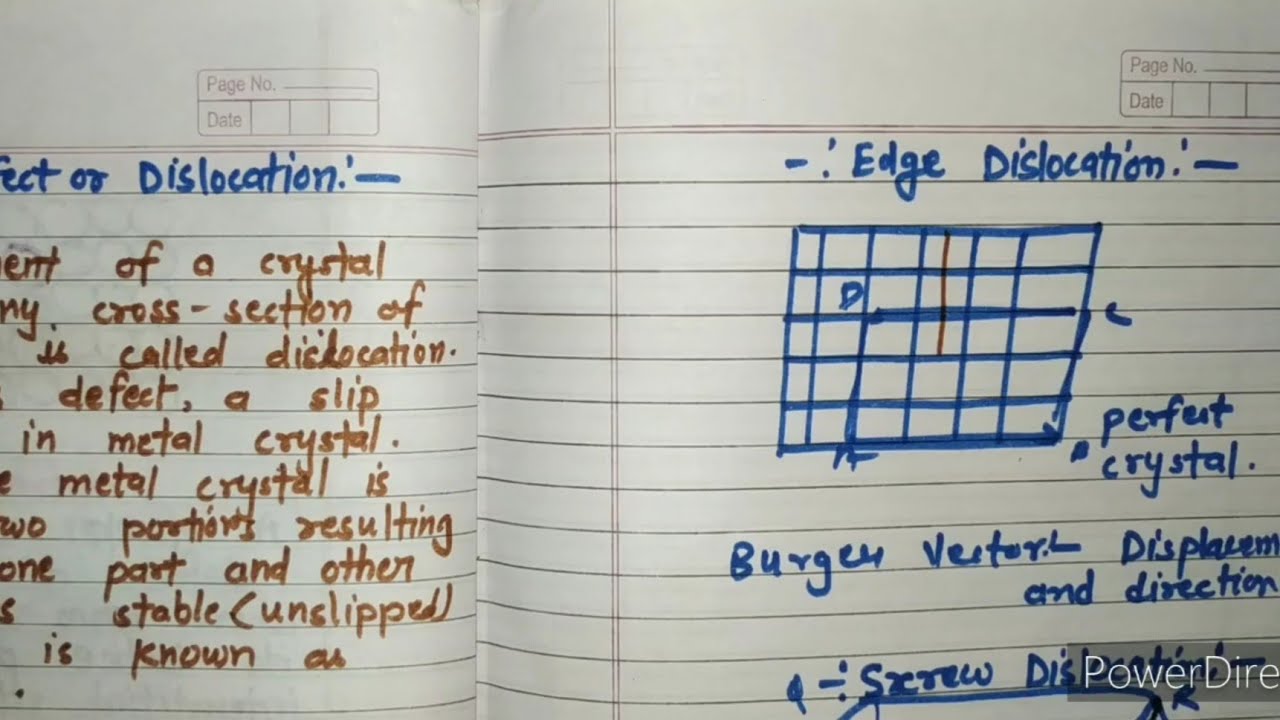 Page No.
Date
ect or Dislocation:-
ent of a crystal
ny cross-section of
is called dislocation.
s defect, a slip
in metal crystal.
e metal crystal is
wo portions resulting
one part and other
s stable (unslipped)
is known as
.
Page No.
Date
-: Edge Dislocation:-
D
C
A
B
perfect
crystal.
Burgers Vector:- Displacem
and direction
-: Sxrew Dislocation:-
PowerDire